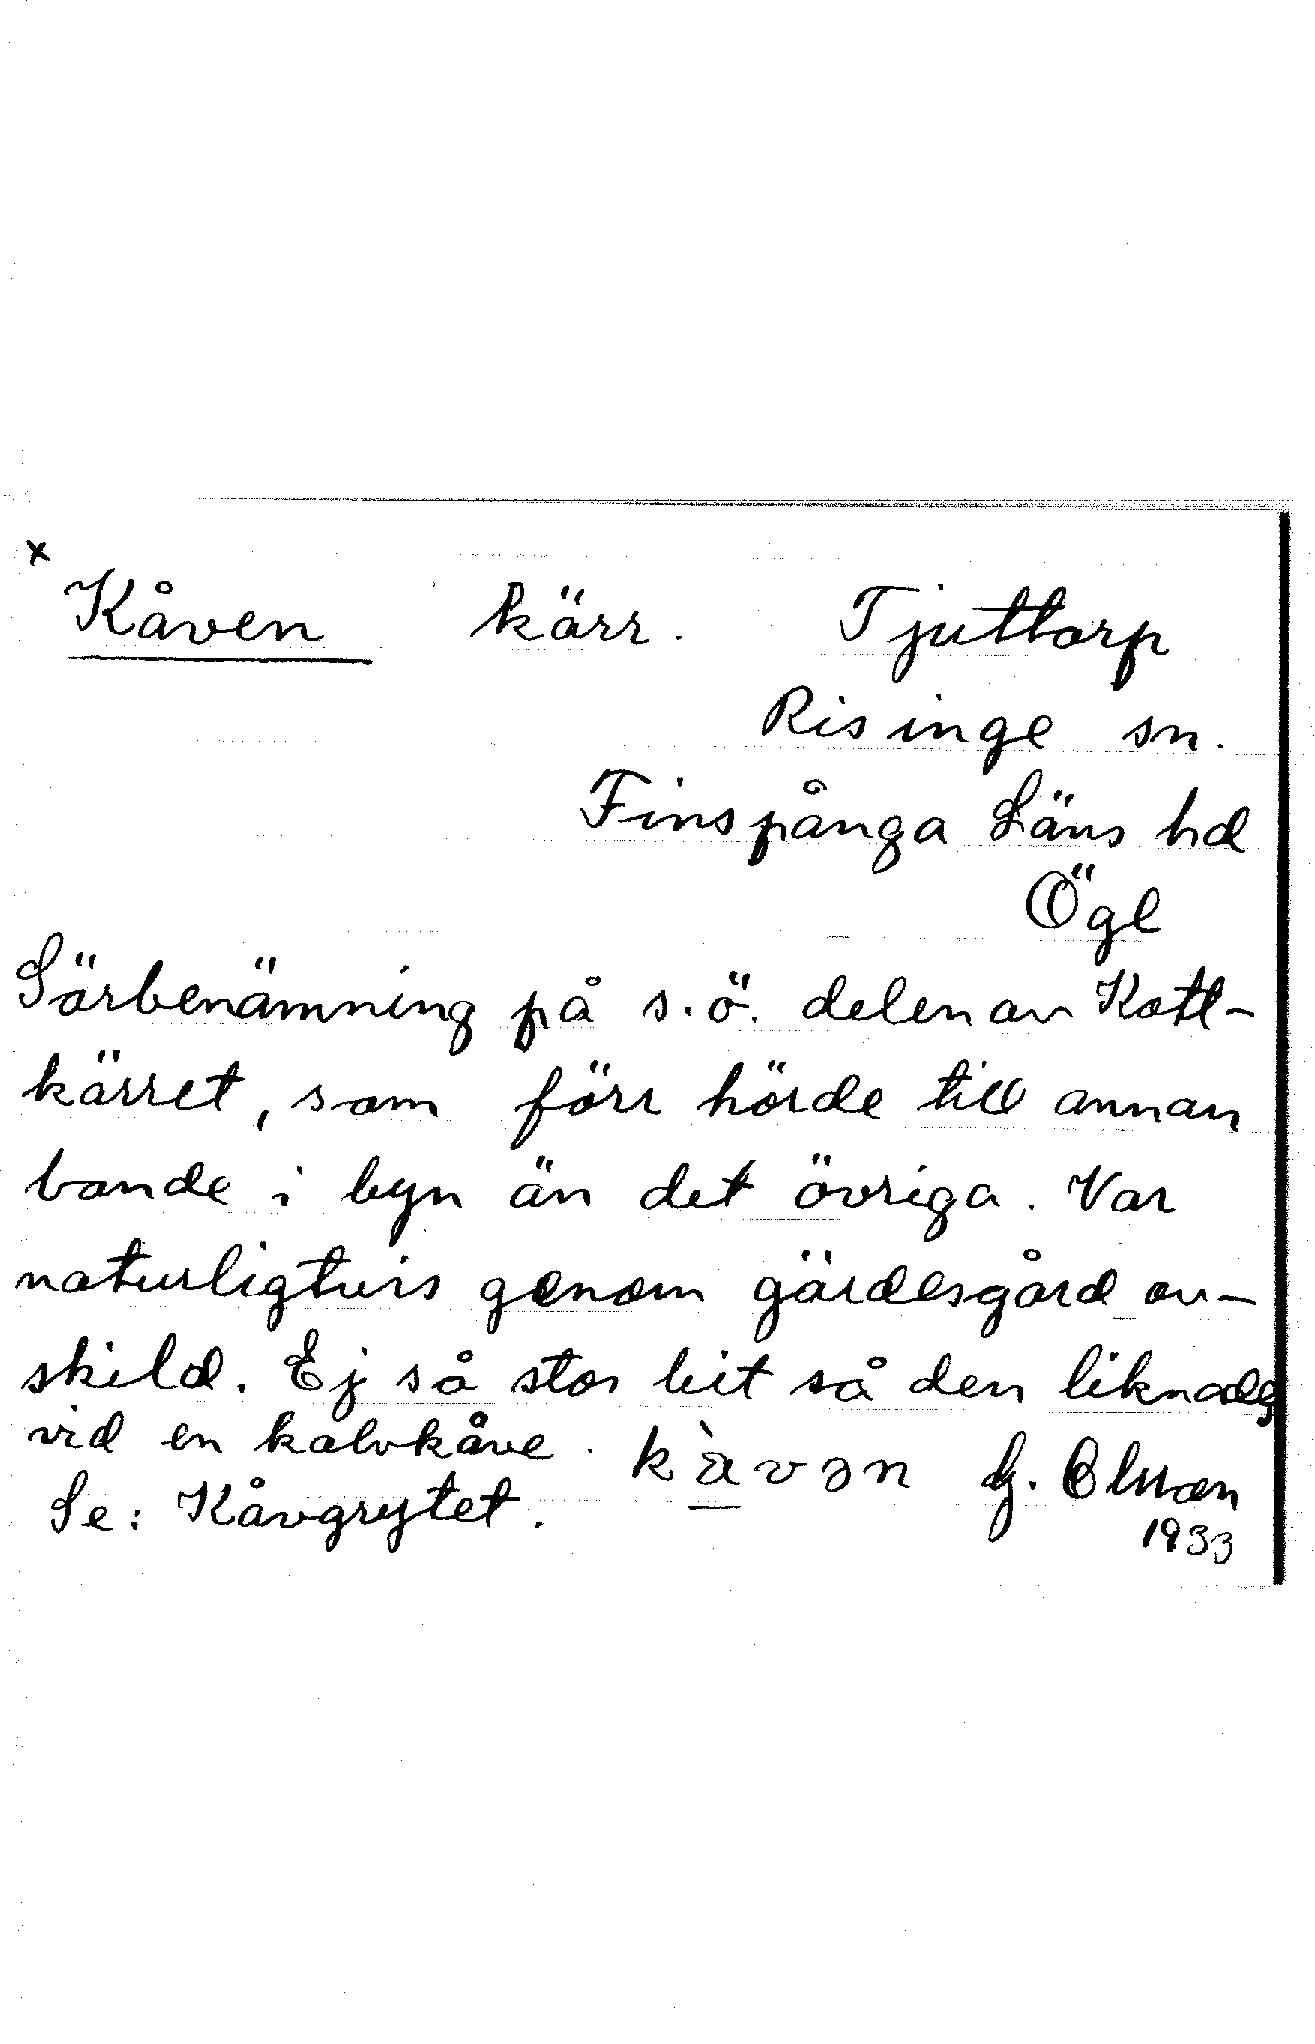 x
Kåven kärr. Tjuttorp
Risinge sn.
Finspånga Läns hd
Ögl
Särbenämning på s.ö. delen av Kott-
kärret, som förr hörde till annan
bonde i byn än det övriga. Var
naturligtvis genom gärdesgård av-
skild. Ej så stor bit så den liknades
vid en kalvkåve. kàvən G. Olsson
Se: Kåvgrytet. 1933